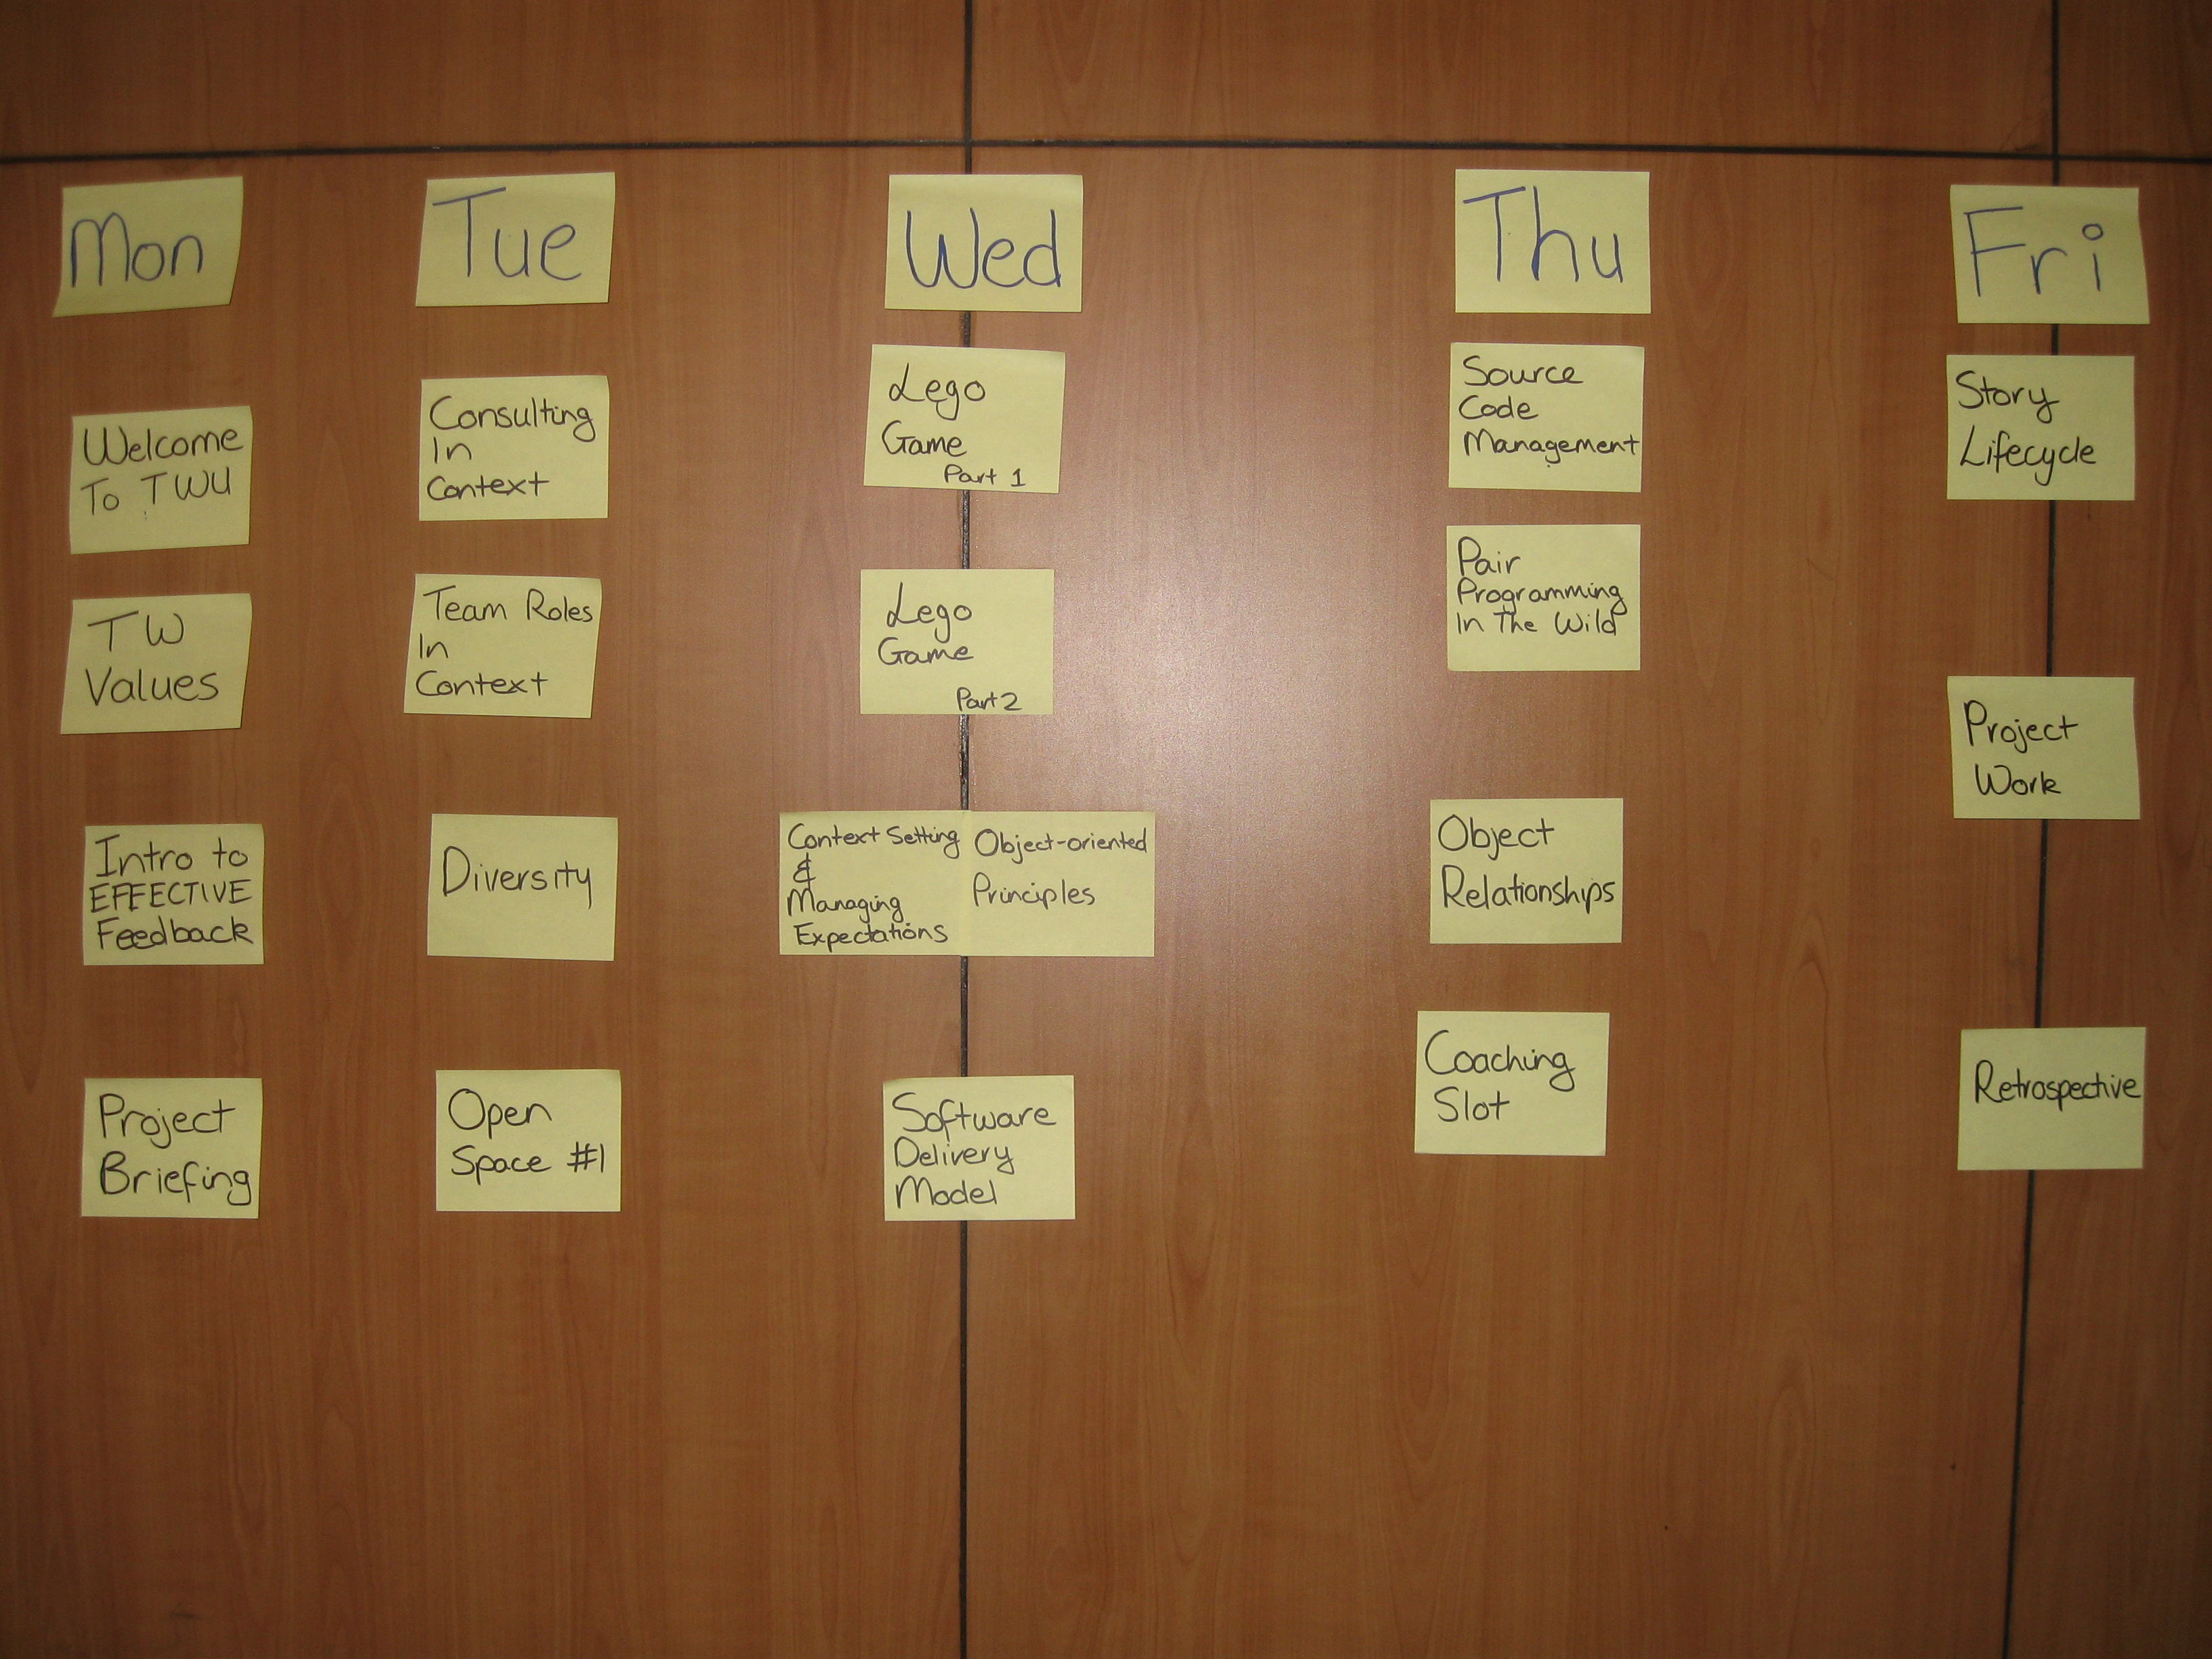 Mon
Welcome
To TWU
TW
Values
Intro to
EFFECTIVE
Feedback
Project
Briefing
Tue
Consulting
In
Context
Team Roles
In
Context
Diversity
Open
Space #1
Wed
Lego
Game
Part 1
Lego
Game
Part 2
Context Setting
&
Managing
Expectations
Object-oriented
Principles
Software
Delivery
Model
Thu
Source
Code
Management
Pair
Programming
In The Wild
Object
Relationships
Coaching
Slot
Fri
Story
Lifecycle
Project
Work
Retrospective